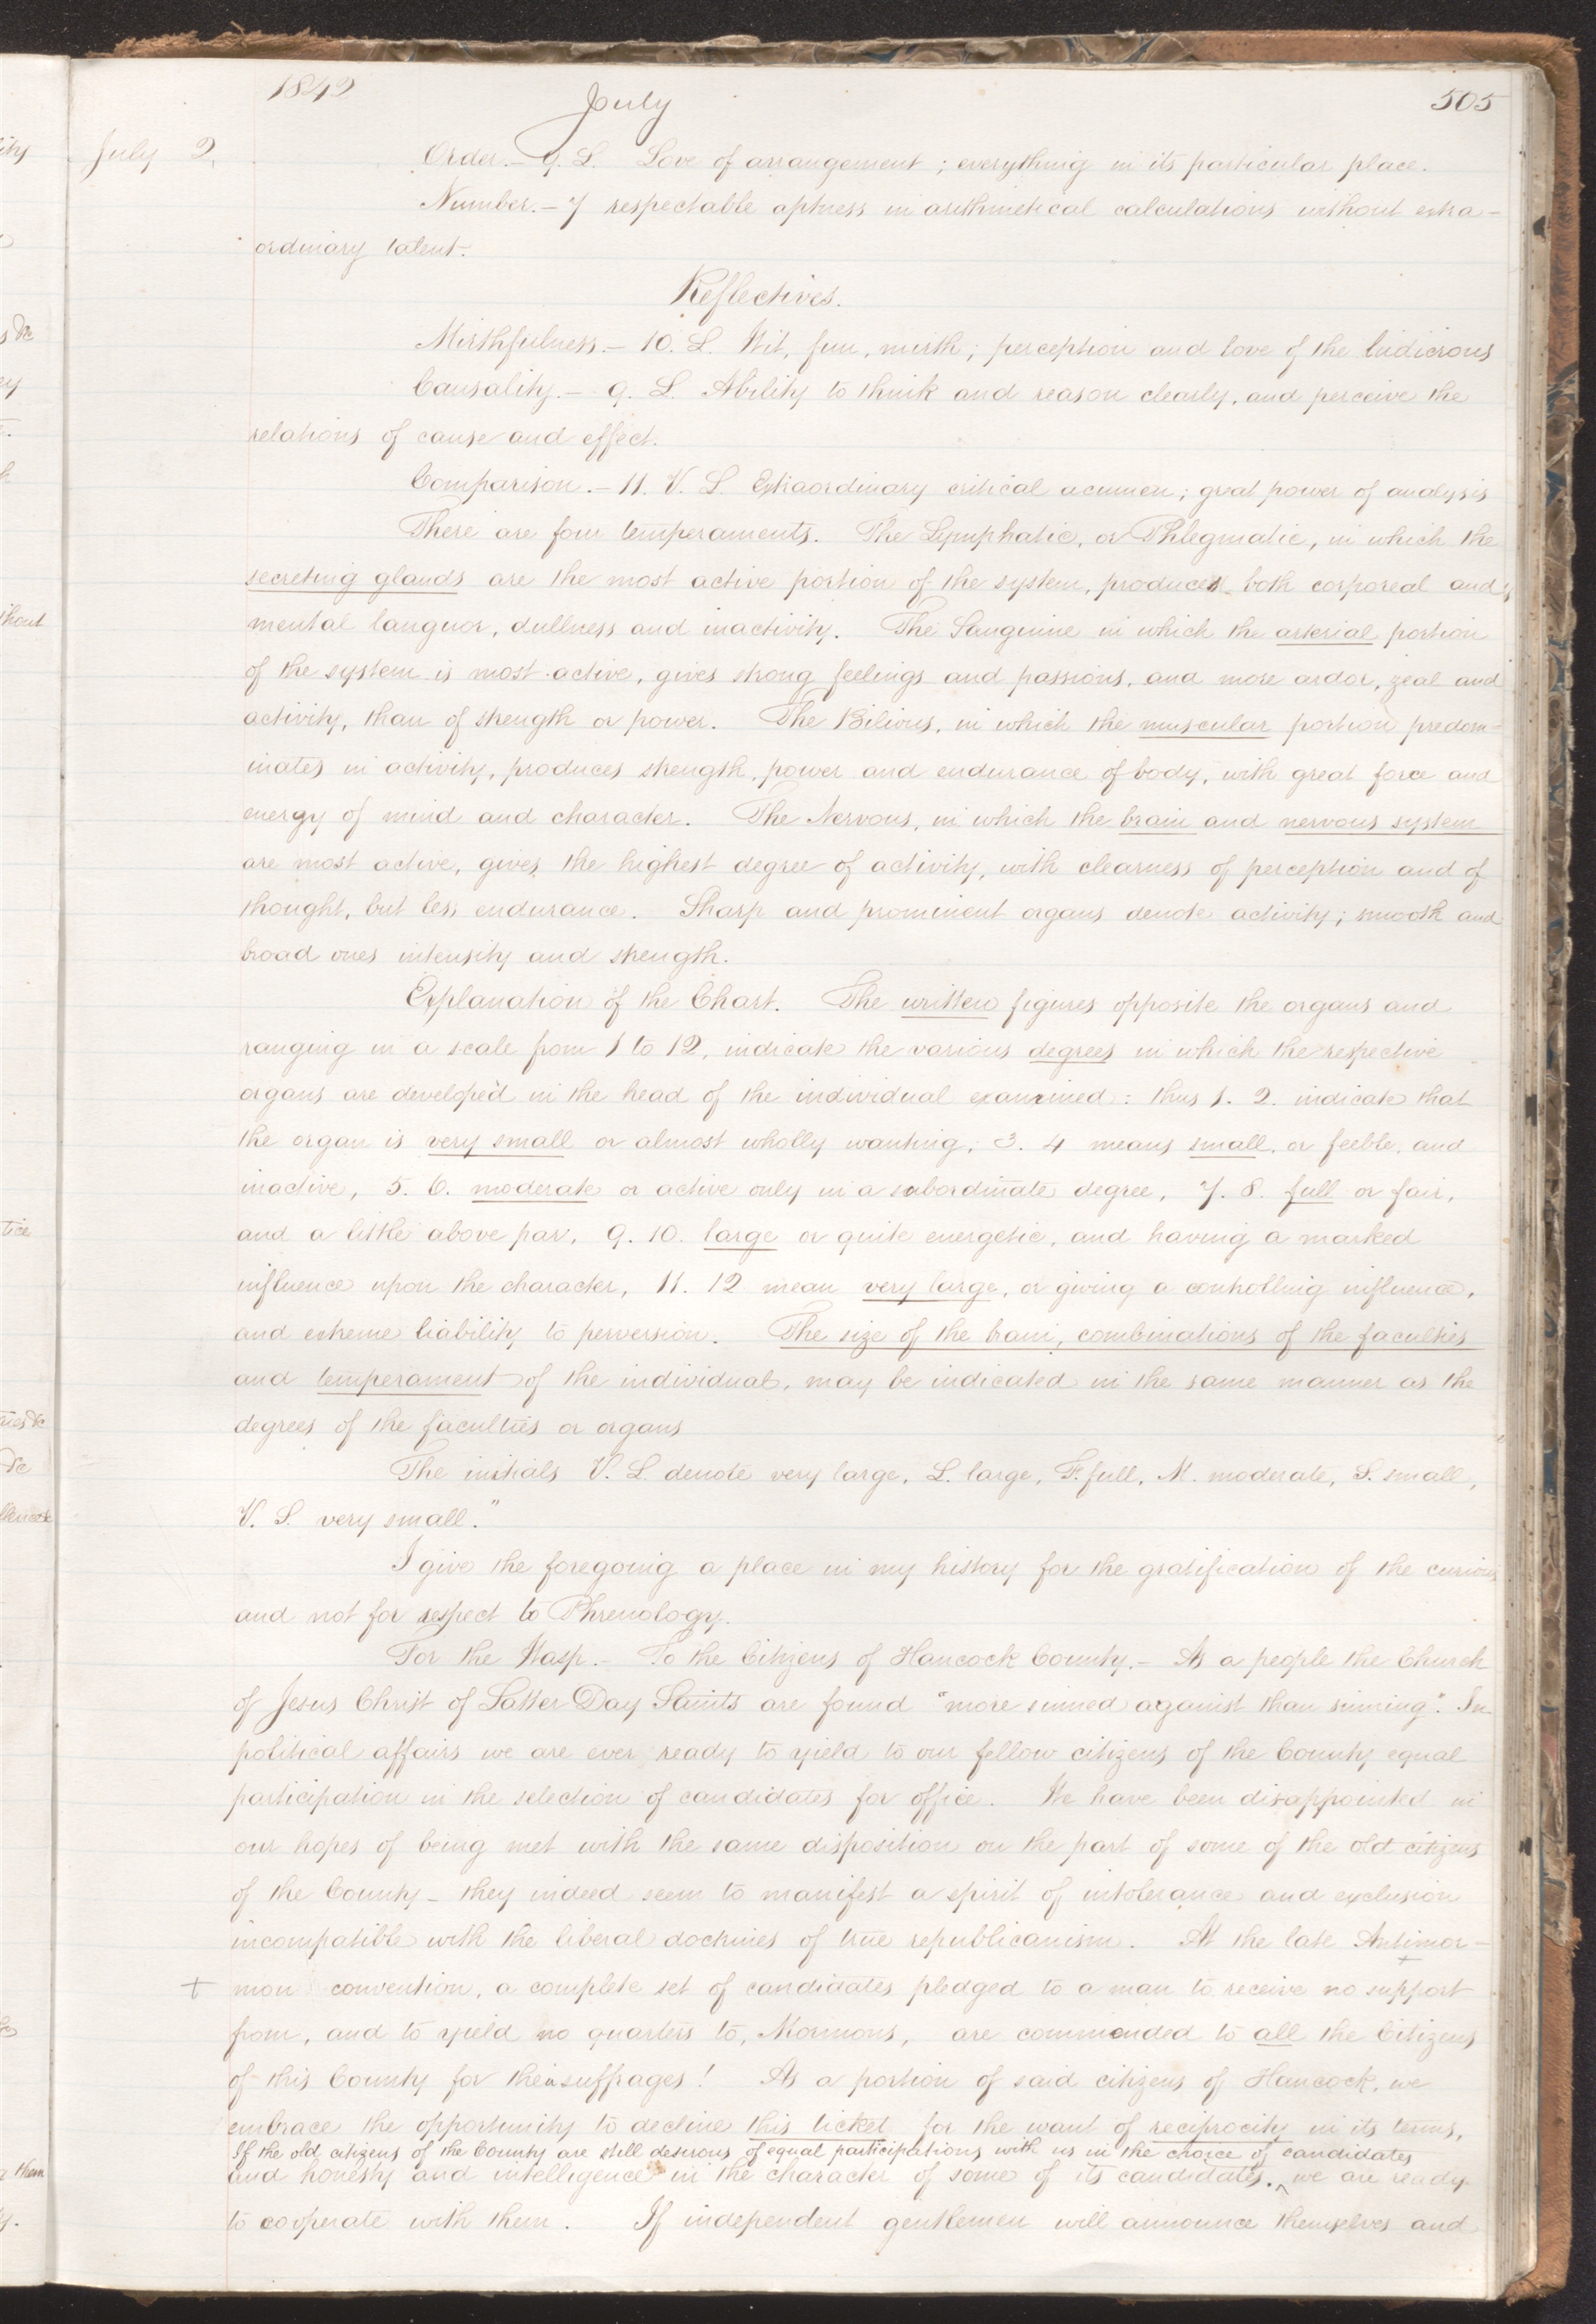 1842 July 505
July 2, Order.— 9. L. Love of arrangement; everything in its particular place.
Number.— 7 respectable aptness in arithmetical calculations without extra-
ordinary talent.
Reflectives.
Mirthfulness.— 10. L. Wit, fun, mirth; perception and love of the ludicrous
Causality.— 9. L. Ability to think and reason clearly, and perceive the
relations of cause and effect.
Comparison.— 11. V. L. Extraordinary critical acumen; great power of analysis
There are four temperaments. The Lymphatic, or Phlegmatic, in which the
secreting glands are the most active portion of the system, produces both corporeal and
mental languor, dullness and inactivity. The Sanguine in which the arterial portion
of the system is most active, gives strong feelings and passions, and more ardor, zeal and
activity, than of strength or power. The Bilious, in which the muscular portion predom-
inates in activity, produces strength, power and endurance of body, with great force and
energy of mind and character. The Nervous, in which the brain and nervous system
are most active, gives the highest degree of activity, with clearness of perception and of
thought, but less endurance. Sharp and prominent organs denote activity; smooth and
broad ones intensity and strength.
Explanation of the Chart. The written figures opposite the organs and
ranging in a scale from 1 to 12, indicate the various degrees in which the respective
organs are developed in the head of the individual examined: thus 1. 2. indicate that
the organ is very small or almost wholly wanting, 3. 4 means small, or feeble, and
inactive, 5. 6. moderate or active only in a subordinate degree, 7. 8. full or fair,
and a little above par, 9. 10. large or quite energetic, and having a marked
influence upon the character, 11. 12 mean very large, or giving a controlling influence,
and extreme liability to perversion. The size of the brain, combinations of the faculties
and temperament of the individual, may be indicated in the same manner as the
degrees of the faculties or organs
The initials V. L. denote very large, L. large, F. full, M. moderate, S. small,
V. S. very small."
I give the foregoing a place in my history for the gratification of the curious
and not for respect to Phrenology.
For the Wasp.— To the Citizens of Hancock County.— As a people the Church
of Jesus Christ of Latter Day Saints are found "more sinned against than sinning". In
political affairs we are ever ready to yield to our fellow citizens of the County equal
participation in the selection of candidates for office. We have been disappointed in
our hopes of being met with the same disposition on the part of some of the old citizens
of the County — they indeed seem to manifest a spirit of intolerance and exclusion
incompatible with the liberal doctrines of true republicanism. At the late Antimor-
+ mon convention, a complete set of candidates pledged to a man to receive no support
from, and to yield no quarters to, Mormons, are commended to all the Citizens
of this County for their suffrages! As a portion of said citizens of Hancock, we
embrace the opportunity to decline this ticket for the want of reciprocity in its terms,
If the old citizens of the County are still desirous of equal participations with us in the choice of candidates
and honesty and intelligence in the character of some of its candidates. ^ we are ready
to cooperate with them. If independent gentlemen will announce themselves and